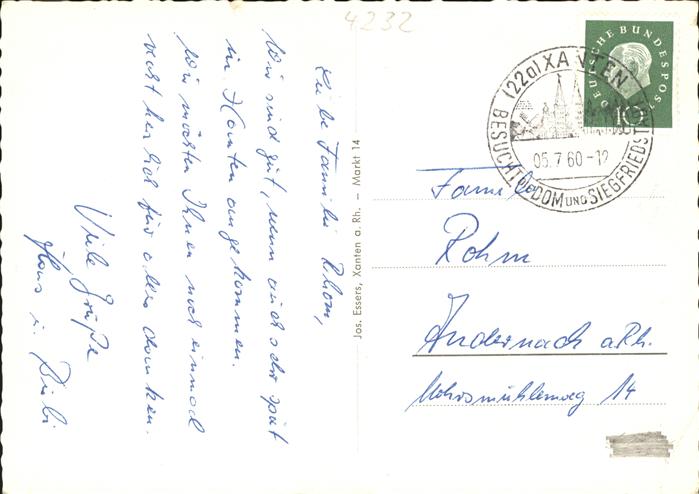 4232
Liebe Familie Rohm,
Wir sind gut, wenn auch sehr spät
in Xanten angekommen.
Wir möchten Ihnen noch einmal
recht herzlich für alles danken.
Viele Grüße
Hans u.
Jos. Essers, Xanten a. Rh. – Markt 14
DEUTSCHE BUNDESPOST
10
(22a) XANTEN
05.7.60-12
BESUCHT DOM UND SIEGFRIEDST
Familie
Rohm
Andernach a Rh.
14